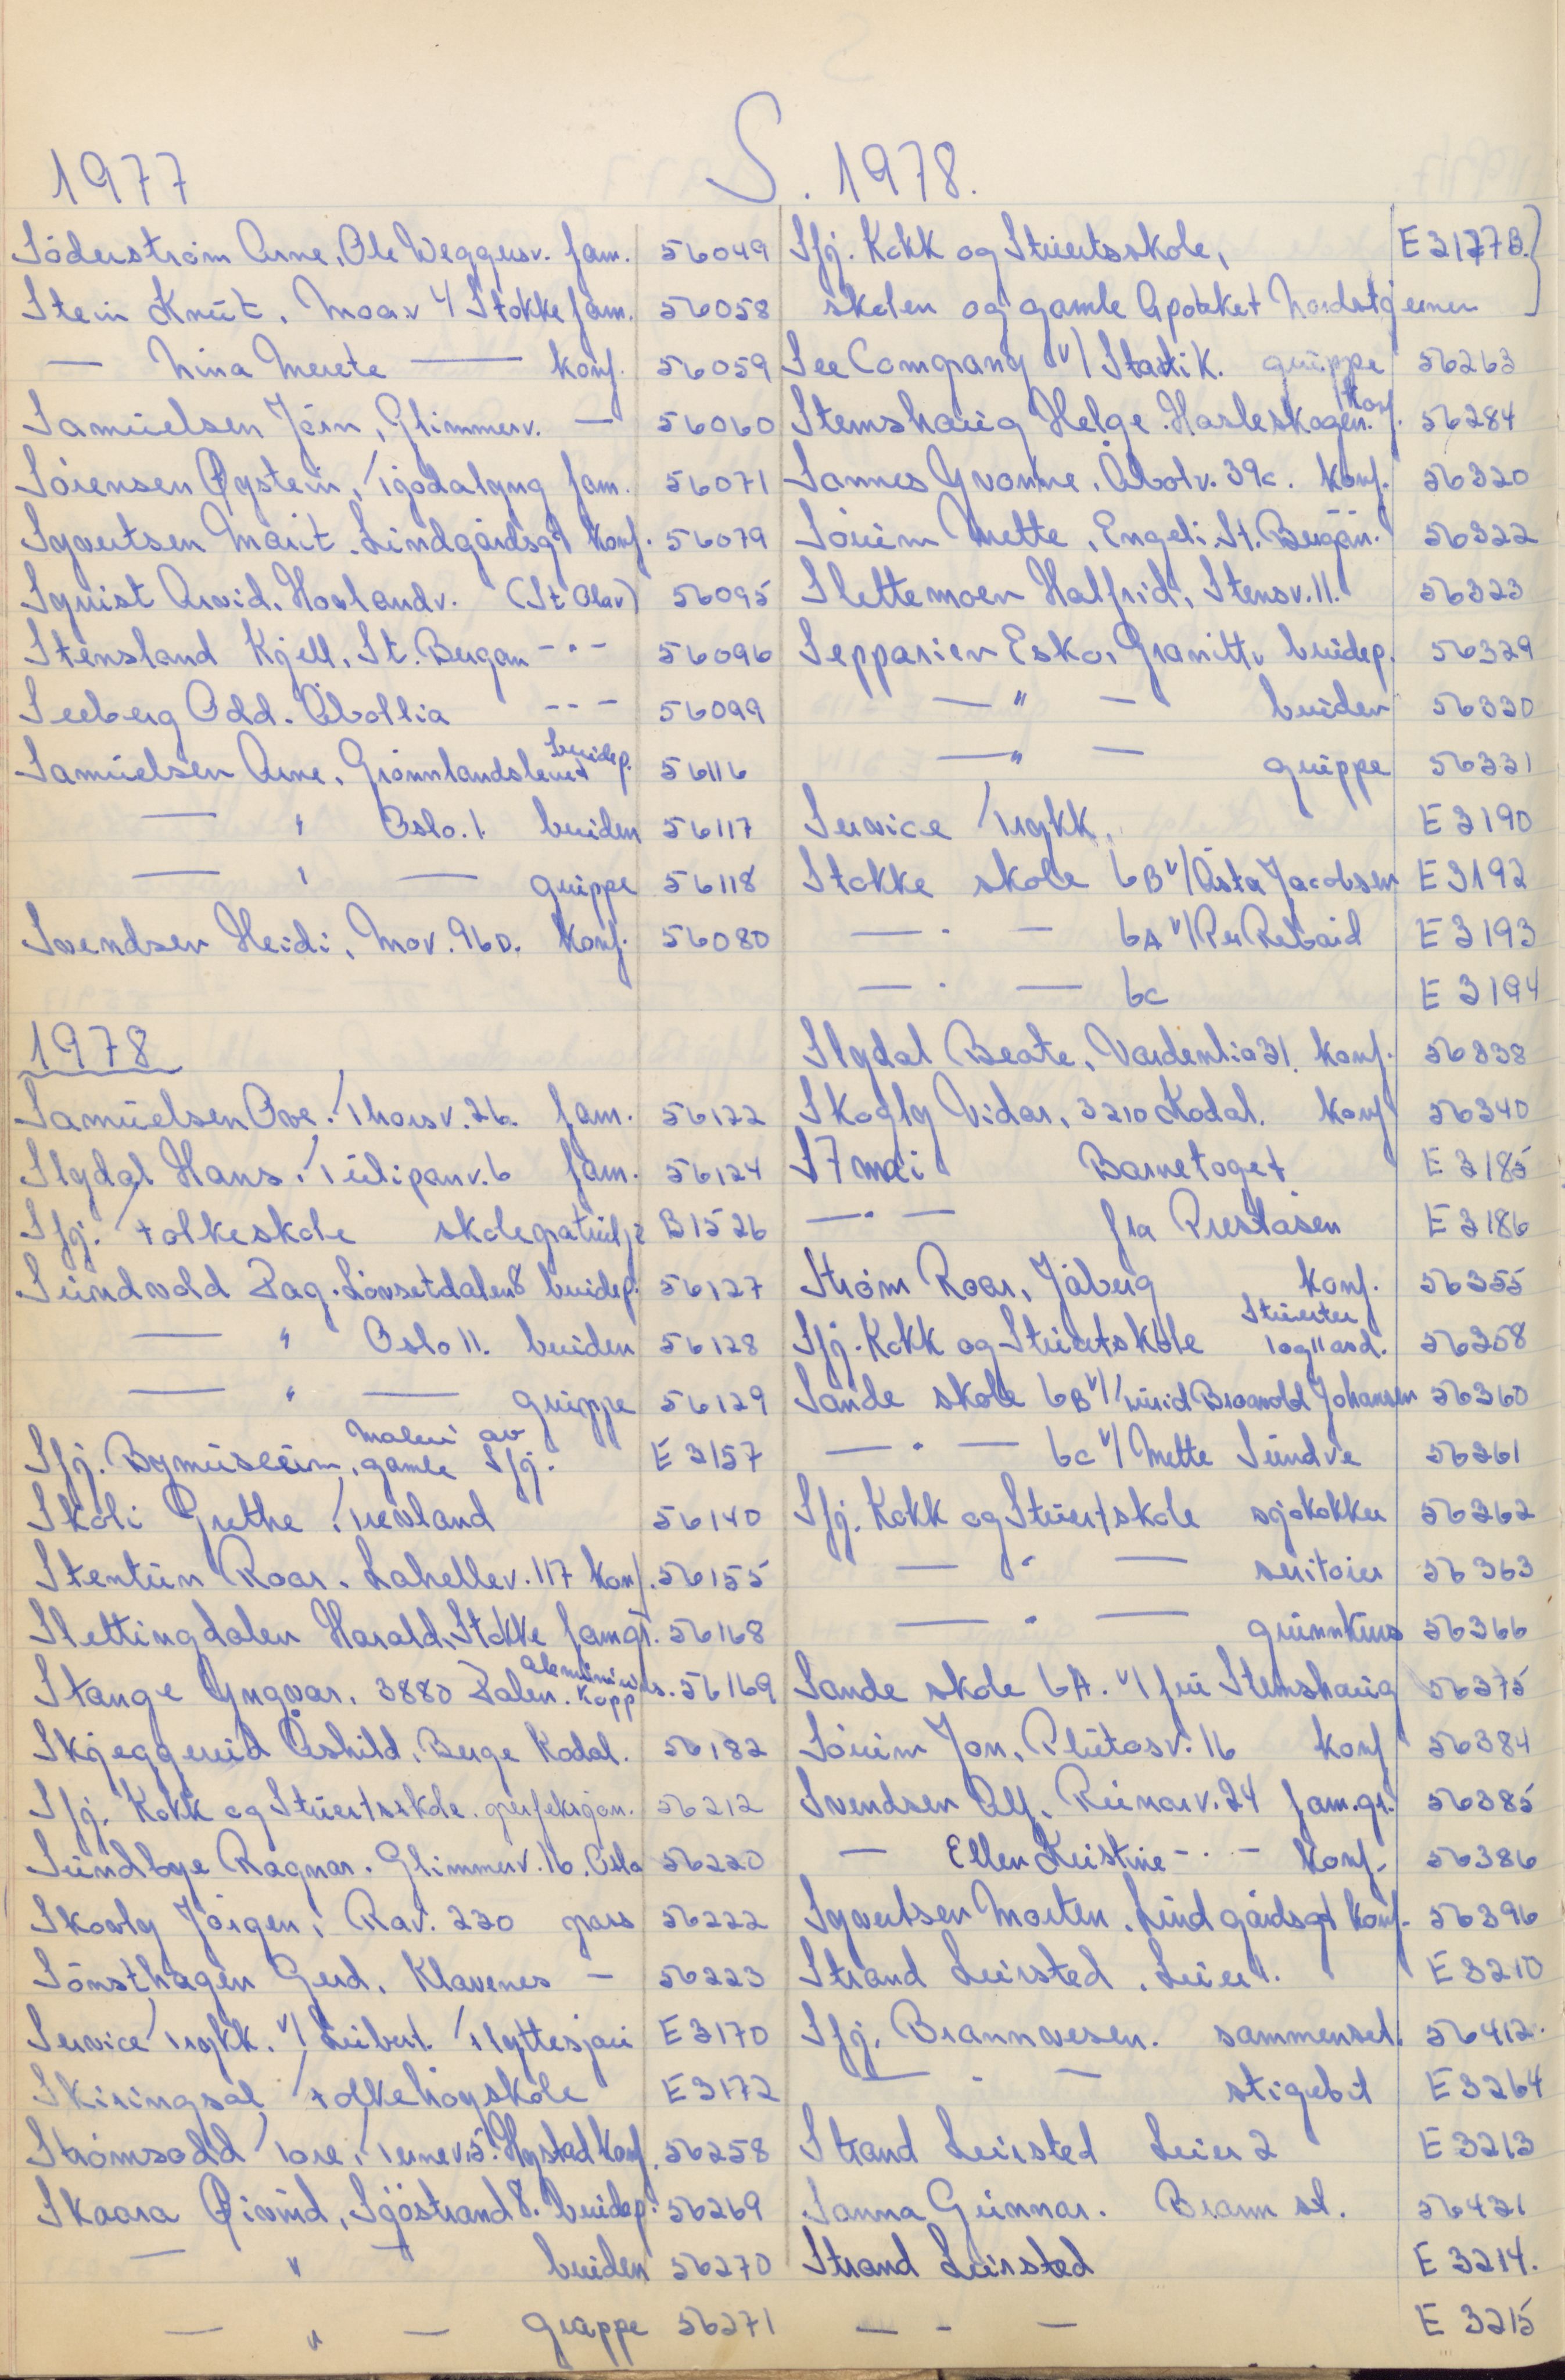 S. 1978.
1977
Söderström Arne, Ole Weggersv. fam. 56049
Stein Knut. Moav 4 Stokke fam. 56058
— Nina Merete — konf. 56059
Samuelsen Jörn, Glimmerv. — 56060
Sörensen Øystein, Tjodalyng fam. 56071
Syvertsen Marit. Lindgårdsgt konf. 56079
Syrist Arvid. Hovlandv. (St Olav) 56095
Stensland Kjell. St. Bergan -"- 56096
Seeberg Odd. Åbollia --- 56099
Samuelsen Arne. Grønnlandsleiret brudep. 56116
— " Oslo. 1. bruden 56117
— " — gruppe 56118
Svendsen Heidi, Mov. 96D. konf. 56080
1978
Samuelsen Ove. Thorsv. 26. fam. 56122
Slydal Hans. Tulipanv. 6 fam. 56124
Sfj. Folkeskole skolepatrulje B1526
Sundvold Dag. Lövsetdalen 8 brudep. 56127
— " Oslo 11. bruden 56128
— " — gruppe 56129
Sfj. Bymuseum, maleri av gamle Sfj. E 3157
Skoli Grethe Treuland 56140
Stentun Roar. Lahellev. 117 konf. 56155
Slettingdalen Harald, Stokke fam.gr. 56168
Stange Yngvar. 3880 Dalen. Kopp 56169
Skjeggerud Åshild. Berge Kodal. 56182
Sfj. Kokk og Stuertskole. perfeksjon. 56212
Sundbye Ragnar. Glimmerv. 16. Oslo 56220
Skovly Jörgen, Rav. 220 pass 56222
Sönsthagen Gerd. Klavenes — 56223
Service Trykk. v/ Leibert. Flyttesjau E 3170
Skiringsal Folkehøyskole E 3172
Strömsodd Tore, Ternev. 5. Hystad konf. 56258
Skaara Øivind, Sjöstrand 8. brudep. 56269
— " — bruden 56270
— " — gruppe 56271
Sfj. Kokk og Stuertsskole, E 3177 B.
skolen og gamle Apoteket Nordstjernen
See Company v/ Stastik. gruppe 56263
Stemshaug Helge. Hasleskogen. 7. konf 56284
Sannes Yvonne. Åbolv. 39c. konf. 56320
Sörum Mette, Engeli. St. Bergan. 56322
Slettemoen Halfrid, Stensv. 11. 56323
Sepparien Esko, Granittv brudep. 56329
— " — bruden 56330
— " — gruppe 56331
Service Trykk. E 3190
Stokke skole 6B v/ Åsta Jacobsen E 3192
— " — 6A v/ Per Rebård E 3193
— " — 6c E 3194
Slydal Beate. Vardenlia 31. konf. 56338
Skogly Vidar, 3210 Kodal. konf 56340
17 mai Barnetoget E 3185
— " — fra Preståsen E 3186
Ström Roar, Jåberg konf. 56355
Sfj. Kokk og Stuertskole Stuerter I og II avd. 56358
Sande skole 6B v/ Turid Bravold Johansen 56360
— " — 6c v/ Mette Sundve 56361
Sfj. Kokk og Stuertskole sjøkokker 56362
— " — servitører 56363
— " — grunnkurs 56366
Sande skole 6A. v/ fru Stemshaug 56375
Sörum Jon, Plutosv. 16 konf 56384
Svendsen Alf. Runarv. 24 fam.gr. 56385
— Ellen Kristine -"- konf. 56386
Syvertsen Morten. Lindgårdsgt konf. 56396
Strand Leirsted. Leier 1. E 3210
Sfj. Brannvesen. sammensel. 56412.
— " — stigebil E 3264
Strand Leirsted Leier 2 E 3213
Sanna Gunnar. Brann st. 56421
Strand Leirsted E 3214.
— " — E 3215